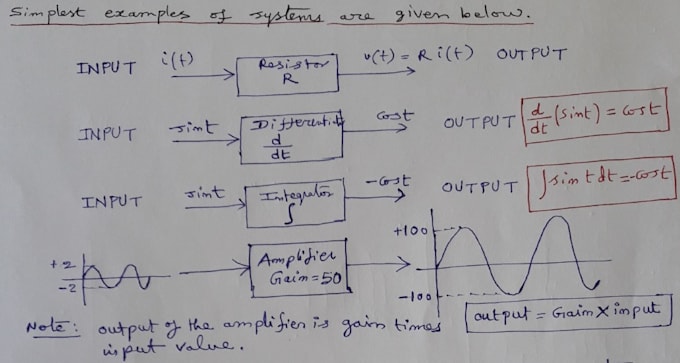 Simplest examples of systems are given below.
INPUT i(t) Resistor R v(t) = R i(t) OUTPUT
INPUT sint Differentiator d/dt cost OUTPUT d/dt (sint) = cost
INPUT sint Integrator ∫ -cost OUTPUT ∫sint dt = -cost
+2 -2 Amplifier Gain=50 +100 -100
output = Gain X input
Note: output of the amplifier is gain times
input value.